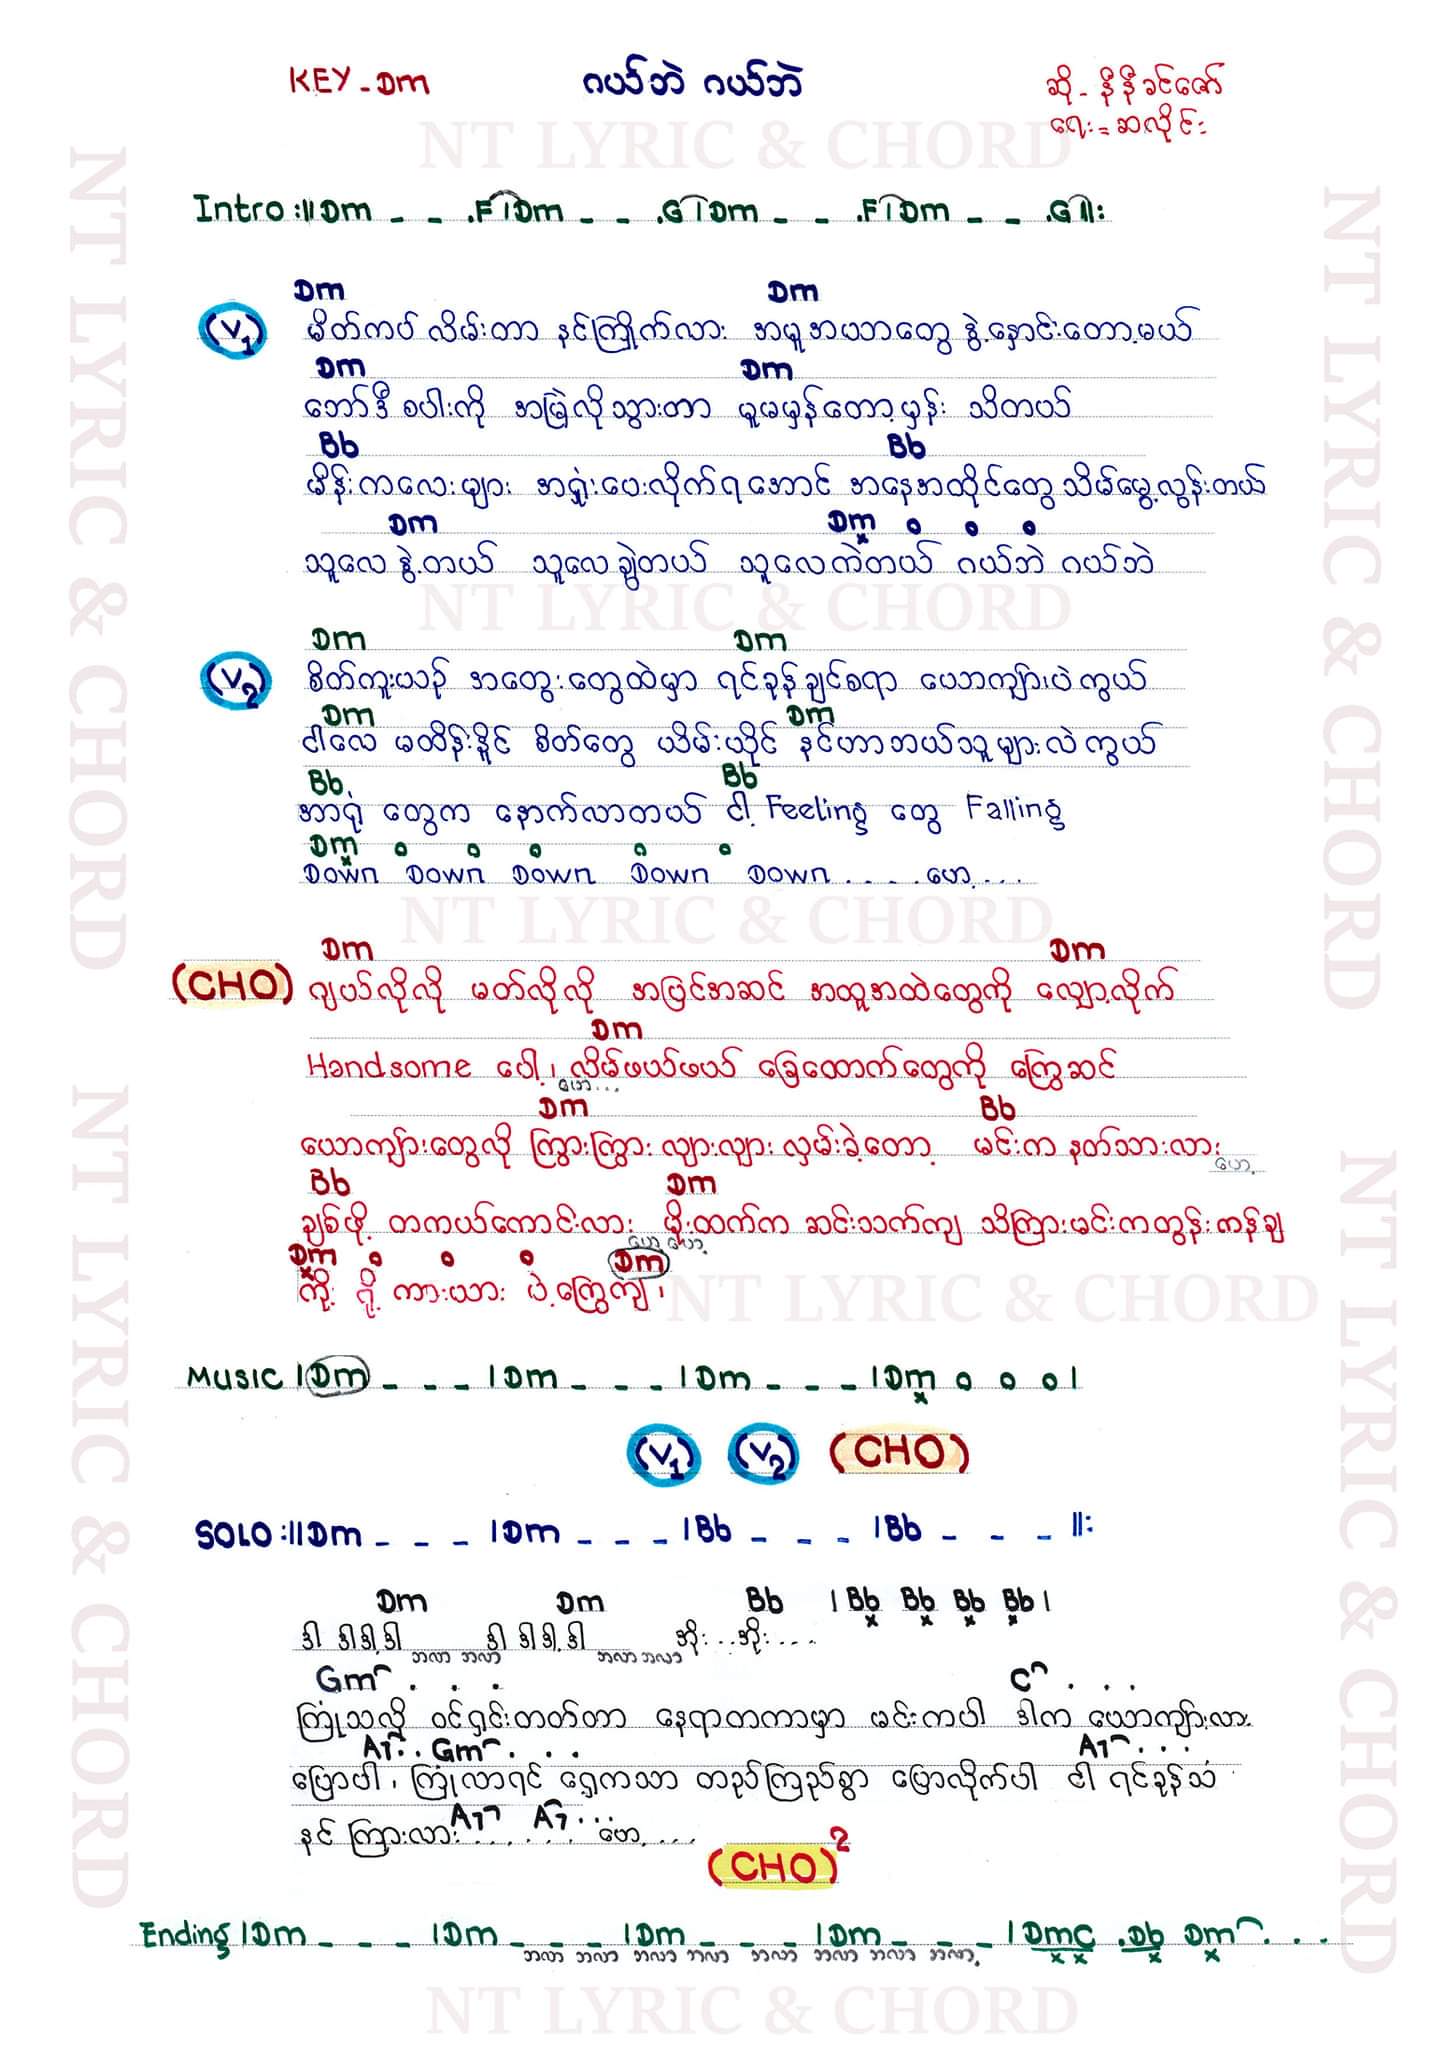 KEY - Dm ဂယ်ဘဲ ဂယ်ဘဲ ဆို - နီနီခင်ဇော်
ရေး = ဆလိုင်း
NT LYRIC & CHORD
Intro :|| Dm _ _ .F | Dm _ _ .G | Dm _ _ .F | Dm _ _ .G ||:
Dm Dm
(V1) မိတ်ကပ် လိမ်းတာ နင်ကြိုက်လား အမူအယာတွေ နွဲ့နှောင်းတော့မယ်
Dm Dm
ဘော်ဒီ စပါးကို အမြဲလိုသွားတာ မူမမှန်တော့မှန်း သိတယ်
Bb Bb
မိန်းကလေးများ အရှုံးပေးလိုက်ရအောင် အနေအထိုင်တွေ သိမ်မွေ့လွန်းတယ်
Dm Dm
သူလေ နွဲ့တယ် သူလေ ချွဲတယ် သူလေကဲတယ် ဂယ်ဘဲ ဂယ်ဘဲ
NT LYRIC & CHORD
Dm Dm
(V2) စိတ်ကူးယဉ် အတွေးတွေထဲမှာ ရင်ခုန်ချင်စရာ ယောကျ်ားပဲကွယ်
Dm Dm
ငါလေ မထိန်းနိူင် စိတ်တွေ ယိမ်းယိုင် နင်ဟာဘယ်သူများလဲကွယ်
Bb Bb
အာရုံ တွေက နောက်လာတယ် ငါ့ Feeling တွေ Falling
Dm
Down Down Down Down Down .... ဟေ့...
NT LYRIC & CHORD
Dm Dm
(CHO) ဂျယ်လိုလို မတ်လိုလို အပြင်အဆင် အထူအထဲတွေကို လျှော့လိုက်
Dm
Handsome ပေါ့၊ လိမ်ဖယ်ဖယ် ခြေထောက်တွေကို ကြွေဆင်
Dm Bb
ယောကျ်ားတွေလို ကြွားကြွား လျားလျား လှမ်းခဲ့တော့ မင်းက နတ်သားလား
ဟေ့
Bb Dm
ချစ်ဖို့ တကယ်ကောင်းလား မိုးထက်က ဆင်းသက်ကျ သိကြားမင်းကတွန်းကန်ချ
ဟေ့ ဟေ့
Dm Dm
ကို့ ရို့ ကားယား ပဲ့ကြွေကျ၊
NT LYRIC & CHORD
MUSIC | Dm _ _ _ | Dm _ _ _ | Dm _ _ _ | Dm o o o |
(V1) (V2) (CHO)
SOLO :|| Dm _ _ _ | Dm _ _ _ | Bb _ _ _ | Bb _ _ _ ||:
Dm Dm Bb | Bb Bb Bb Bb |
ဒါ ဒါဒါ့ဒါ ဘလာ ဘလာ ဒါ ဒါဒါ့ဒါ ဘလာ ဘလာ အိုး... အိုး....
Gm . . . C . . .
ကြုံသလို ဝင်ရှင်းတတ်တာ နေရာတကာမှာ မင်းကပါ ဒါက ယောကျ်ားလား
A7 . . Gm . . . A7 . . .
ပြောပါ၊ ကြုံလာရင် ရှေ့ကသာ တည်ကြည်စွာ ပြောလိုက်ပါ ငါ ရင်ခုန်သံ
A7 A7 ...
နင် ကြားလား....... ဟေ့....
(CHO)2
Ending | Dm _ _ _ | Dm _ _ _ | Dm _ _ _ | Dm _ _ _ | Dm C .Db Dm . . .
ဘလာ ဘလာ ဘလာ ဘလာ ဘလာ ဘလာ ဘလာ ဘလာ့
NT LYRIC & CHORD
NT LYRIC & CHORD
NT LYRIC & CHORD
NT LYRIC & CHORD
NT LYRIC & CHORD